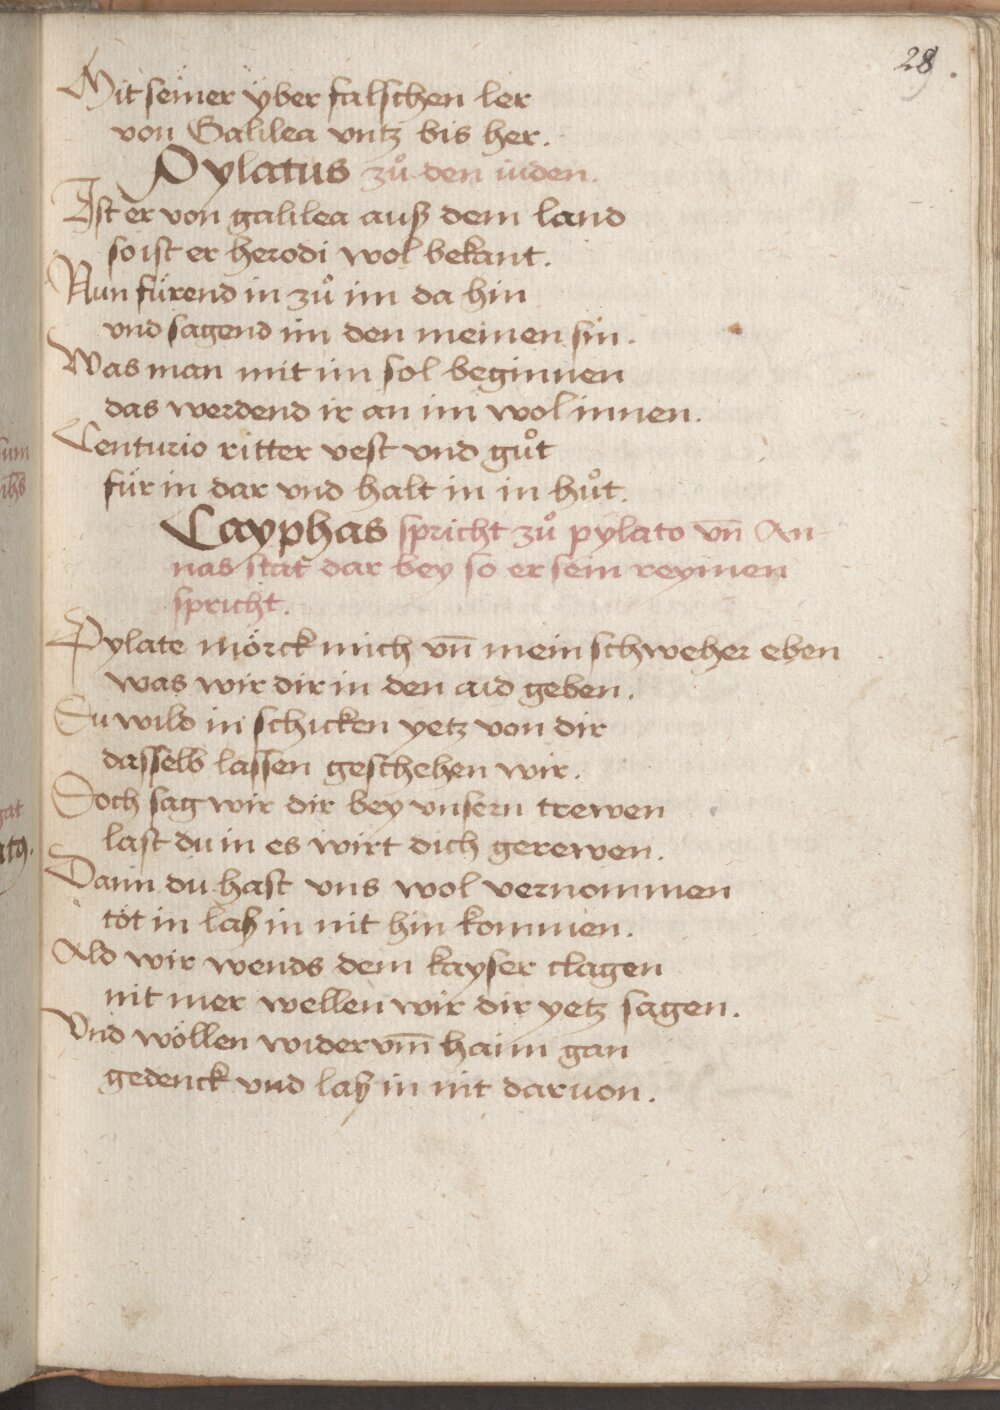 28.
Mit seiner ÿber falschen ler
von Galilea vntz bis her.
Pylatus zuͦ den iuden.
Ist er von galilea auß dem land
so ist er herodi wol bekant.
Nun fürend in zuͦ im da hin
vnd sagend im den meinen sin.
Was man mit im sol beginnen
das werdend ir an im wol innen.
Centurio ritter vest vnd guͦt
für in dar vnd halt in in huͦt.
Cayphas spricht zuͦ pylato vn̄ An-
nas stat dar bey so er sein reymen
spricht.
Pylate mörck mich vn̄ mein schweher eben
was wir dir in den aid geben.
Du wild in schicken yetz von dir
dasselb lassen geschehen wir.
Doch sag wir dir bey vnsern trewen
last du in es wirt dich gerewen.
Dann du hast vns wol vernommen
töt in laß in nit hin kommen.
Ald wir wends dem kayser clagen
nit mer wellen wir dir yetz sagen.
Vnd wöllen widervm̄ haim gan
gedenck vnd laß in nit daruon.